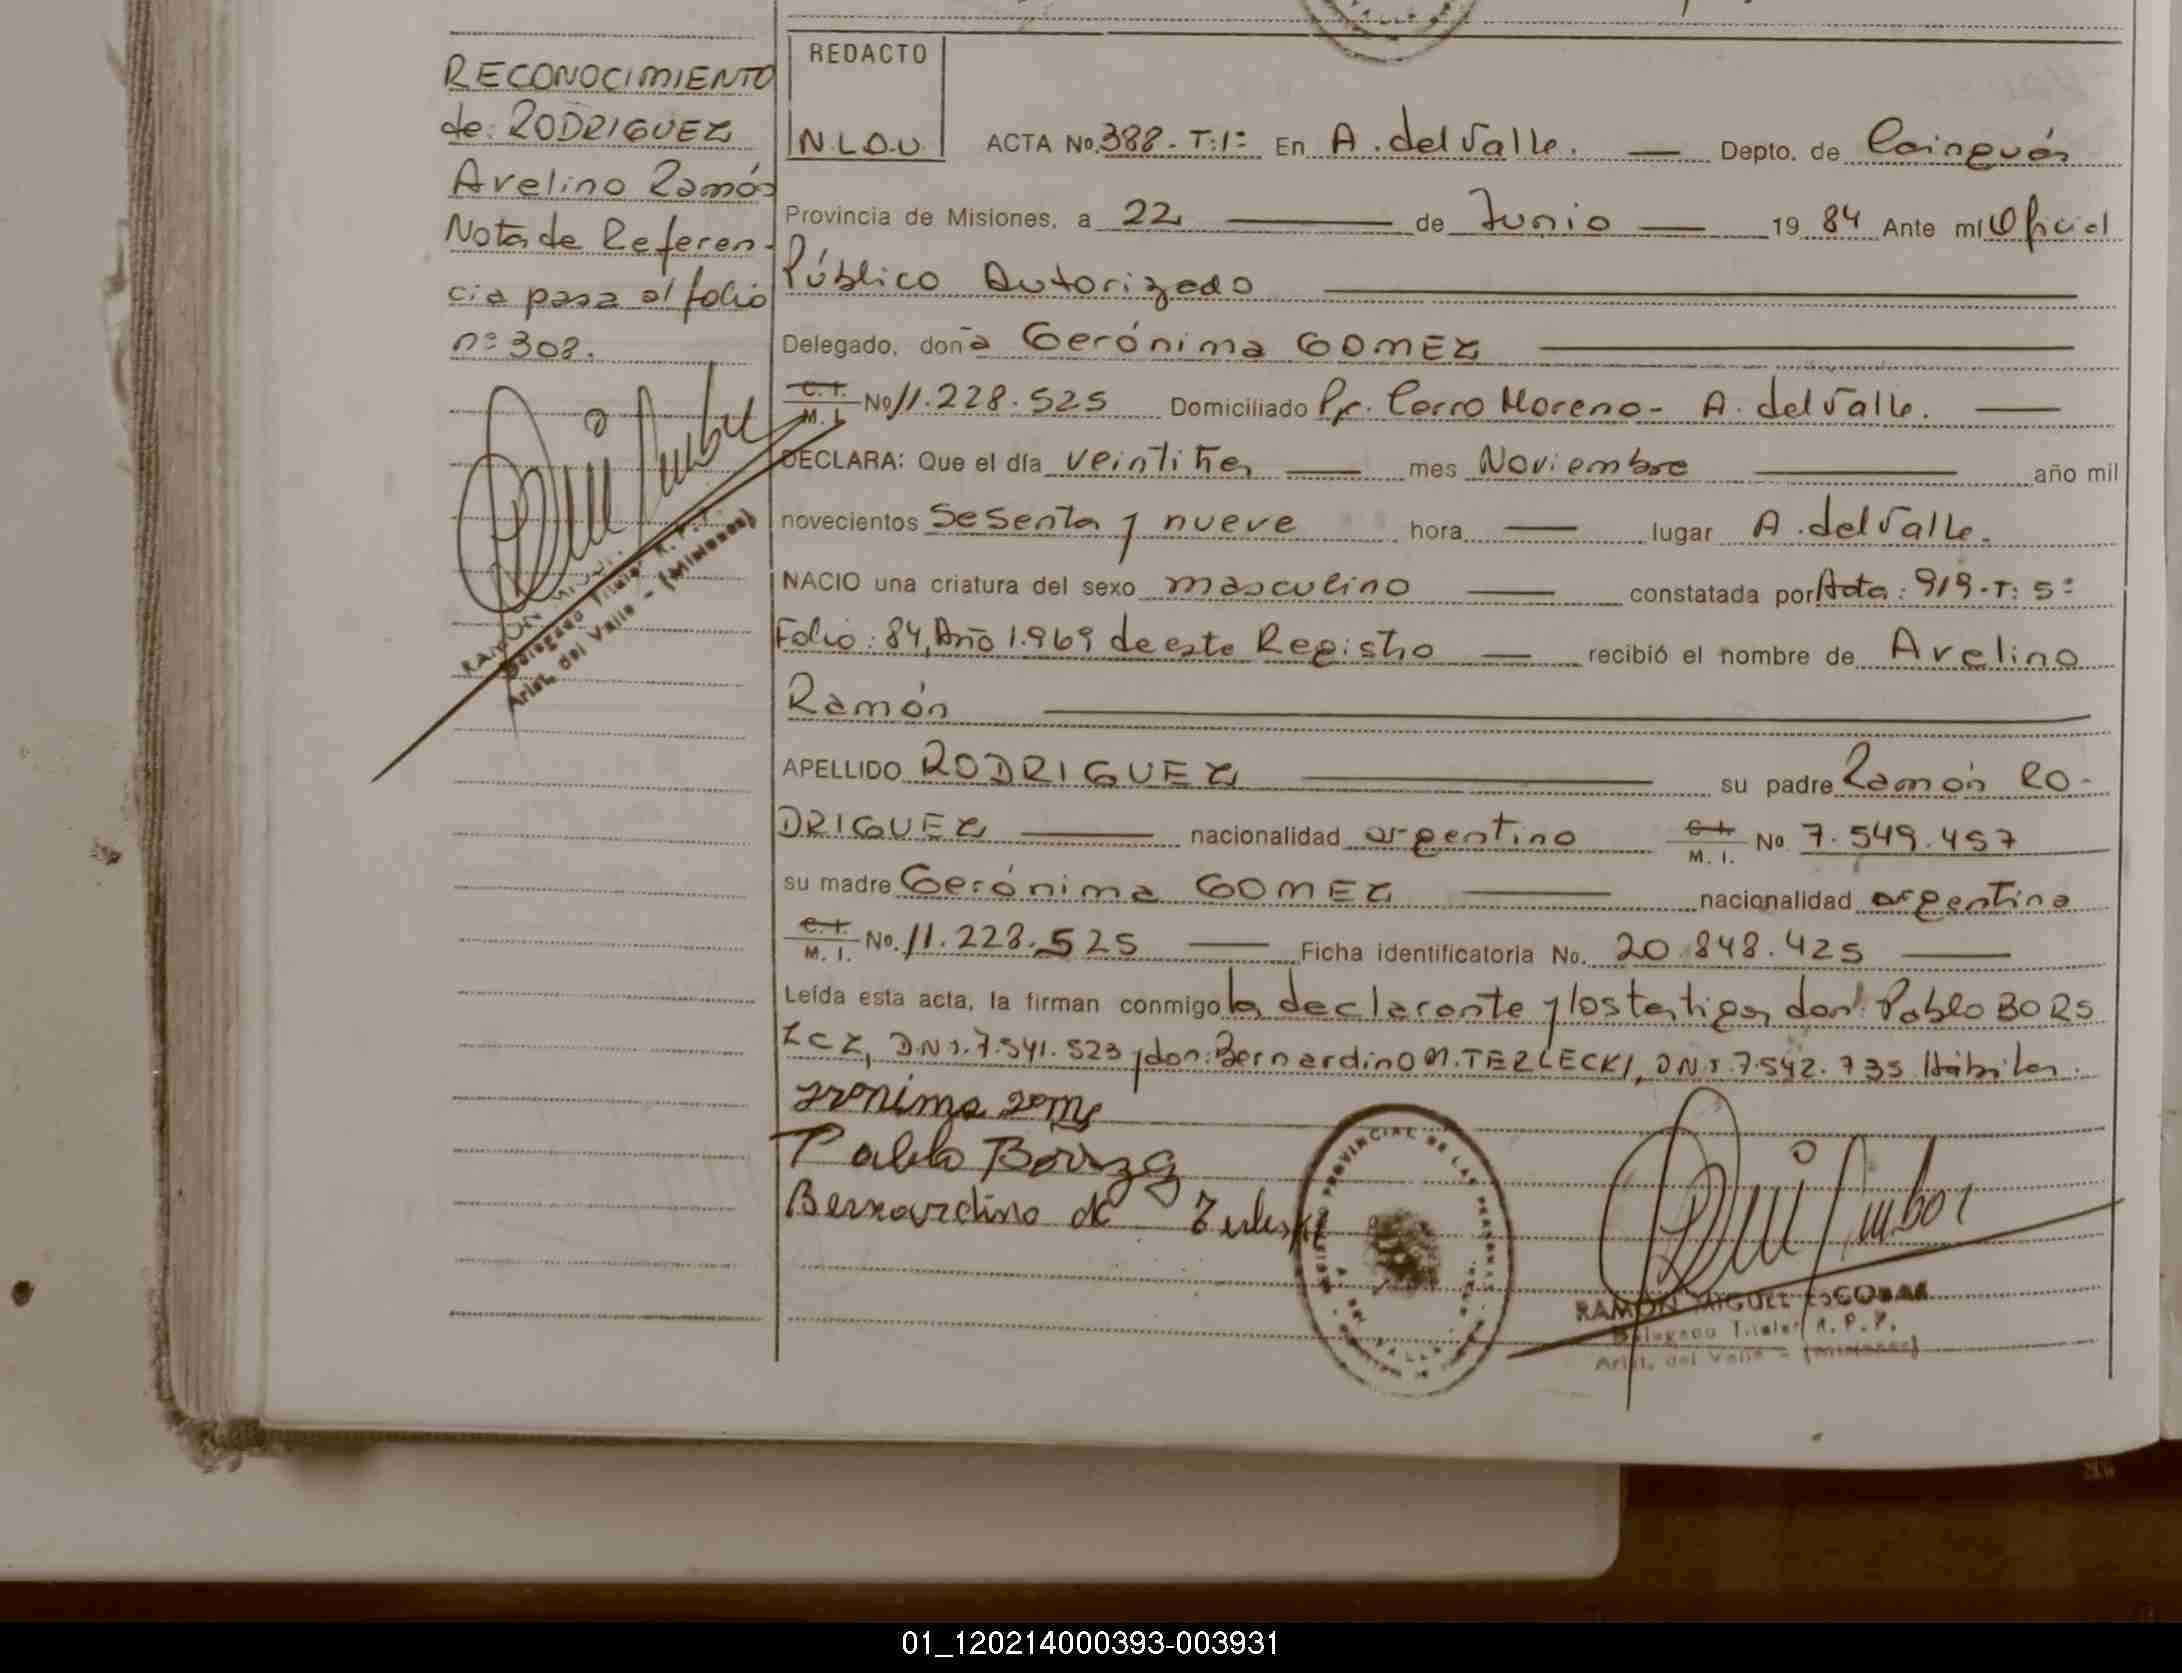 RECONOCIMIENTO
de: RODRIGUEZ
Avelino Ramón
Nota de Referen-
cia pasa al folio
nº 308.
RAMON
Delegado Titular R. P. P.
Arist. del Valle - (Misiones)
REDACTO
N.L.D.U.
ACTA No. 388. T:1º En A. del Valle. — Depto. de Cainguás
Provincia de Misiones, a 22 — de Junio — 19 84 Ante mí Oficial
Público Autorizado —
Delegado, doña Gerónima GOMEZ —
C.I. / M.I. No 11.228.525 Domiciliado Pje. Cerro Moreno - A. del Valle. —
DECLARA: Que el día veintitres — mes Noviembre — año mil
novecientos sesenta y nueve hora — lugar A. del Valle.
NACIO una criatura del sexo masculino — constatada por Acta: 919. T: 5º
Folio: 84, Año 1.969 de este Registro — recibió el nombre de Avelino
Ramón —
APELLIDO RODRIGUEZ — su padre Ramón RO-
DRIGUEZ — nacionalidad argentino C.I. / M.I. No 7.549.457
su madre Gerónima GOMEZ — nacionalidad argentina
C.I. / M.I. No. 11.228.525 — Ficha identificatoria No. 20.848.425 —
Leída esta acta, la firman conmigo la declarante y los testigos don: Pablo BORS
ZCZ, D.N.I. 7.541.523 y don: Bernardino M. TERLECKI, D.N.I. 7.542.735 Hábiles.
Pablo
Bernardino
PROVINCIAL DE LAS PERSONAS
DEL VALLE
RAMON MIGUEL ESCOBAR
Delegado Titular R. P. P.
Arist. del Valle - (Misiones)
01_120214000393-003931